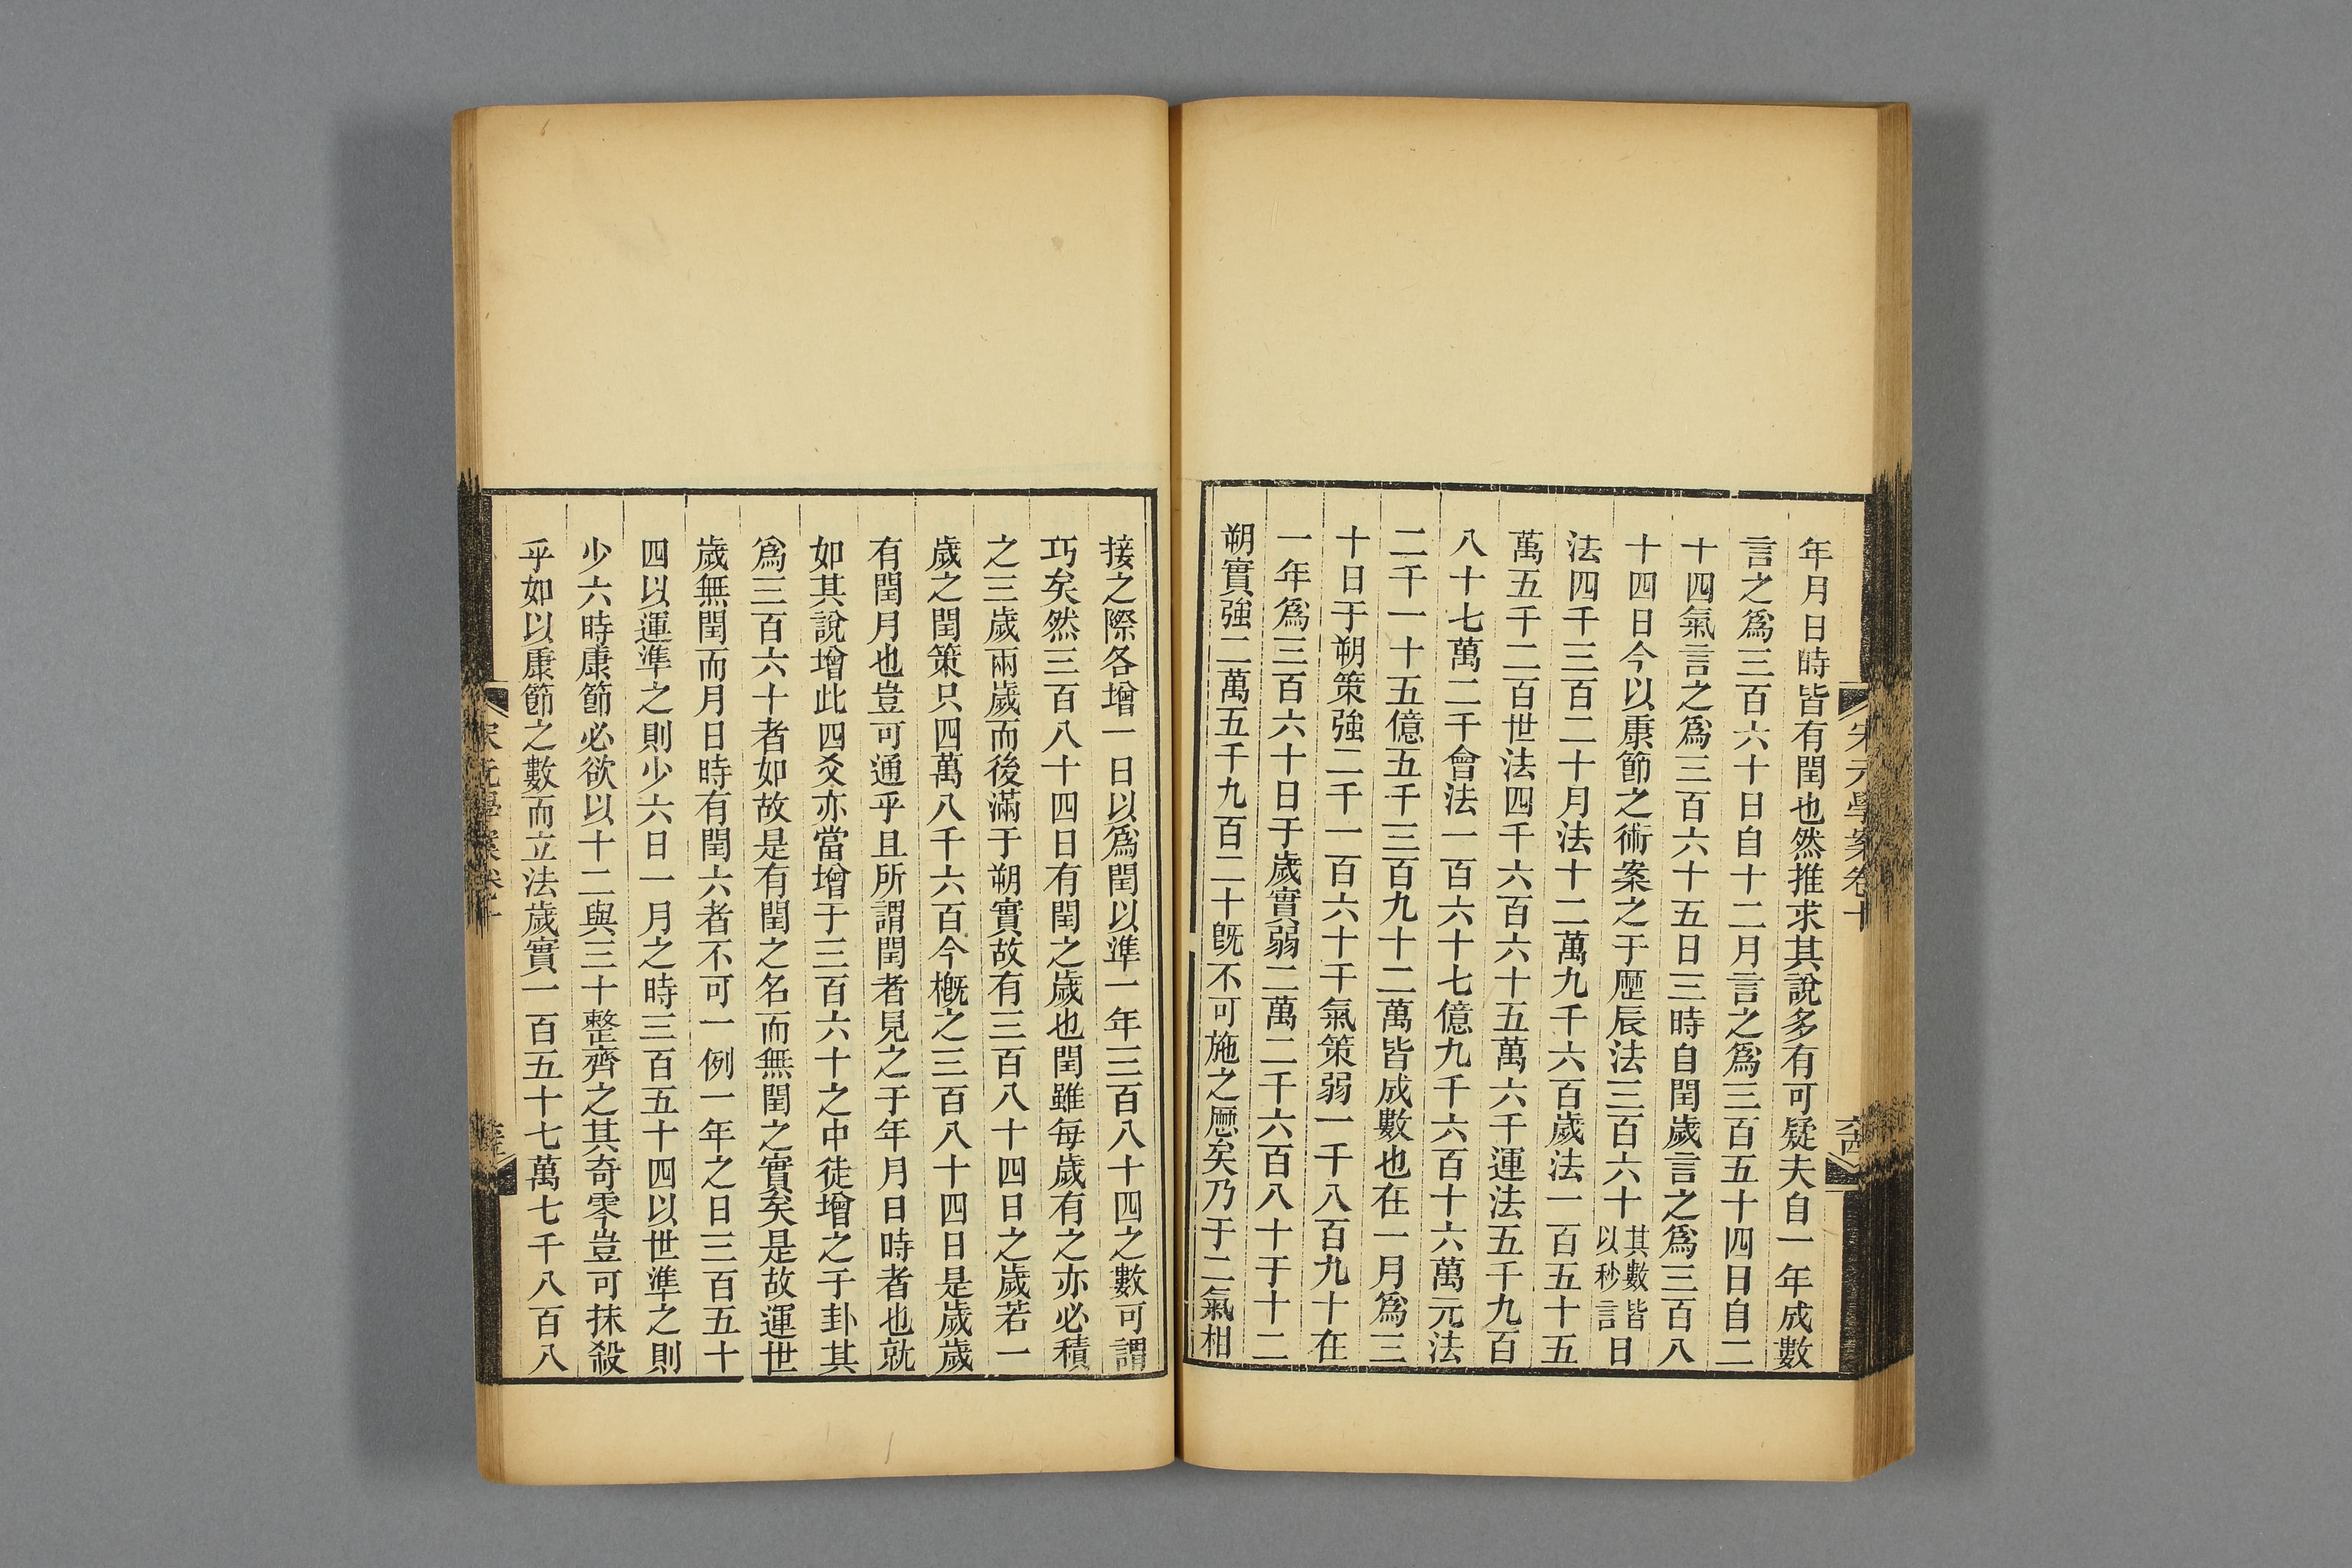 宋元學案卷十
年月日時皆有閏也然推求其說多有可疑夫自一年成數
言之爲三百六十日自十二月言之爲三百五十四日自二
十四氣言之爲三百六十五日三時自閏歲言之爲三百八
十四日今以康節之術案之于歷辰法三百六十其數皆以秒言日
法四千三百二十月法十二萬九千六百歲法一百五十五
萬五千二百世法四千六百六十五萬六千運法五千九百
八十七萬二千會法一百六十七億九千六百十六萬元法
二千一十五億五千三百九十二萬皆成數也在一月爲三
十日于朔策強二千一百六十千氣策弱一千八百九十在
一年爲三百六十日于歲實弱二萬二千六百八十于十二
朔實強二萬五千九百二十旣不可施之歷矣乃于二氣相
接之際各增一日以爲閏以準一年三百八十四之數可謂
巧矣然三百八十四日有閏之歲也閏雖每歲有之亦必積
之三歲兩歲而後滿于朔實故有三百八十四日之歲若一
歲之閏策只四萬八千六百今槪之三百八十四日是歲歲
有閏月也豈可通乎且所謂閏者見之于年月日時者也就
如其說增此四爻亦當增于三百六十之中徒增之于卦其
爲三百六十者如故是有閏之名而無閏之實矣是故運世
歲無閏而月日時有閏六者不可一例一年之日三百五十
四以運準之則少六日一月之時三百五十四以世準之則
少六時康節必欲以十二與三十整齊之其奇零豈可抹殺
乎如以康節之數而立法歲實一百五十七萬七千八百八
宋元學案卷十